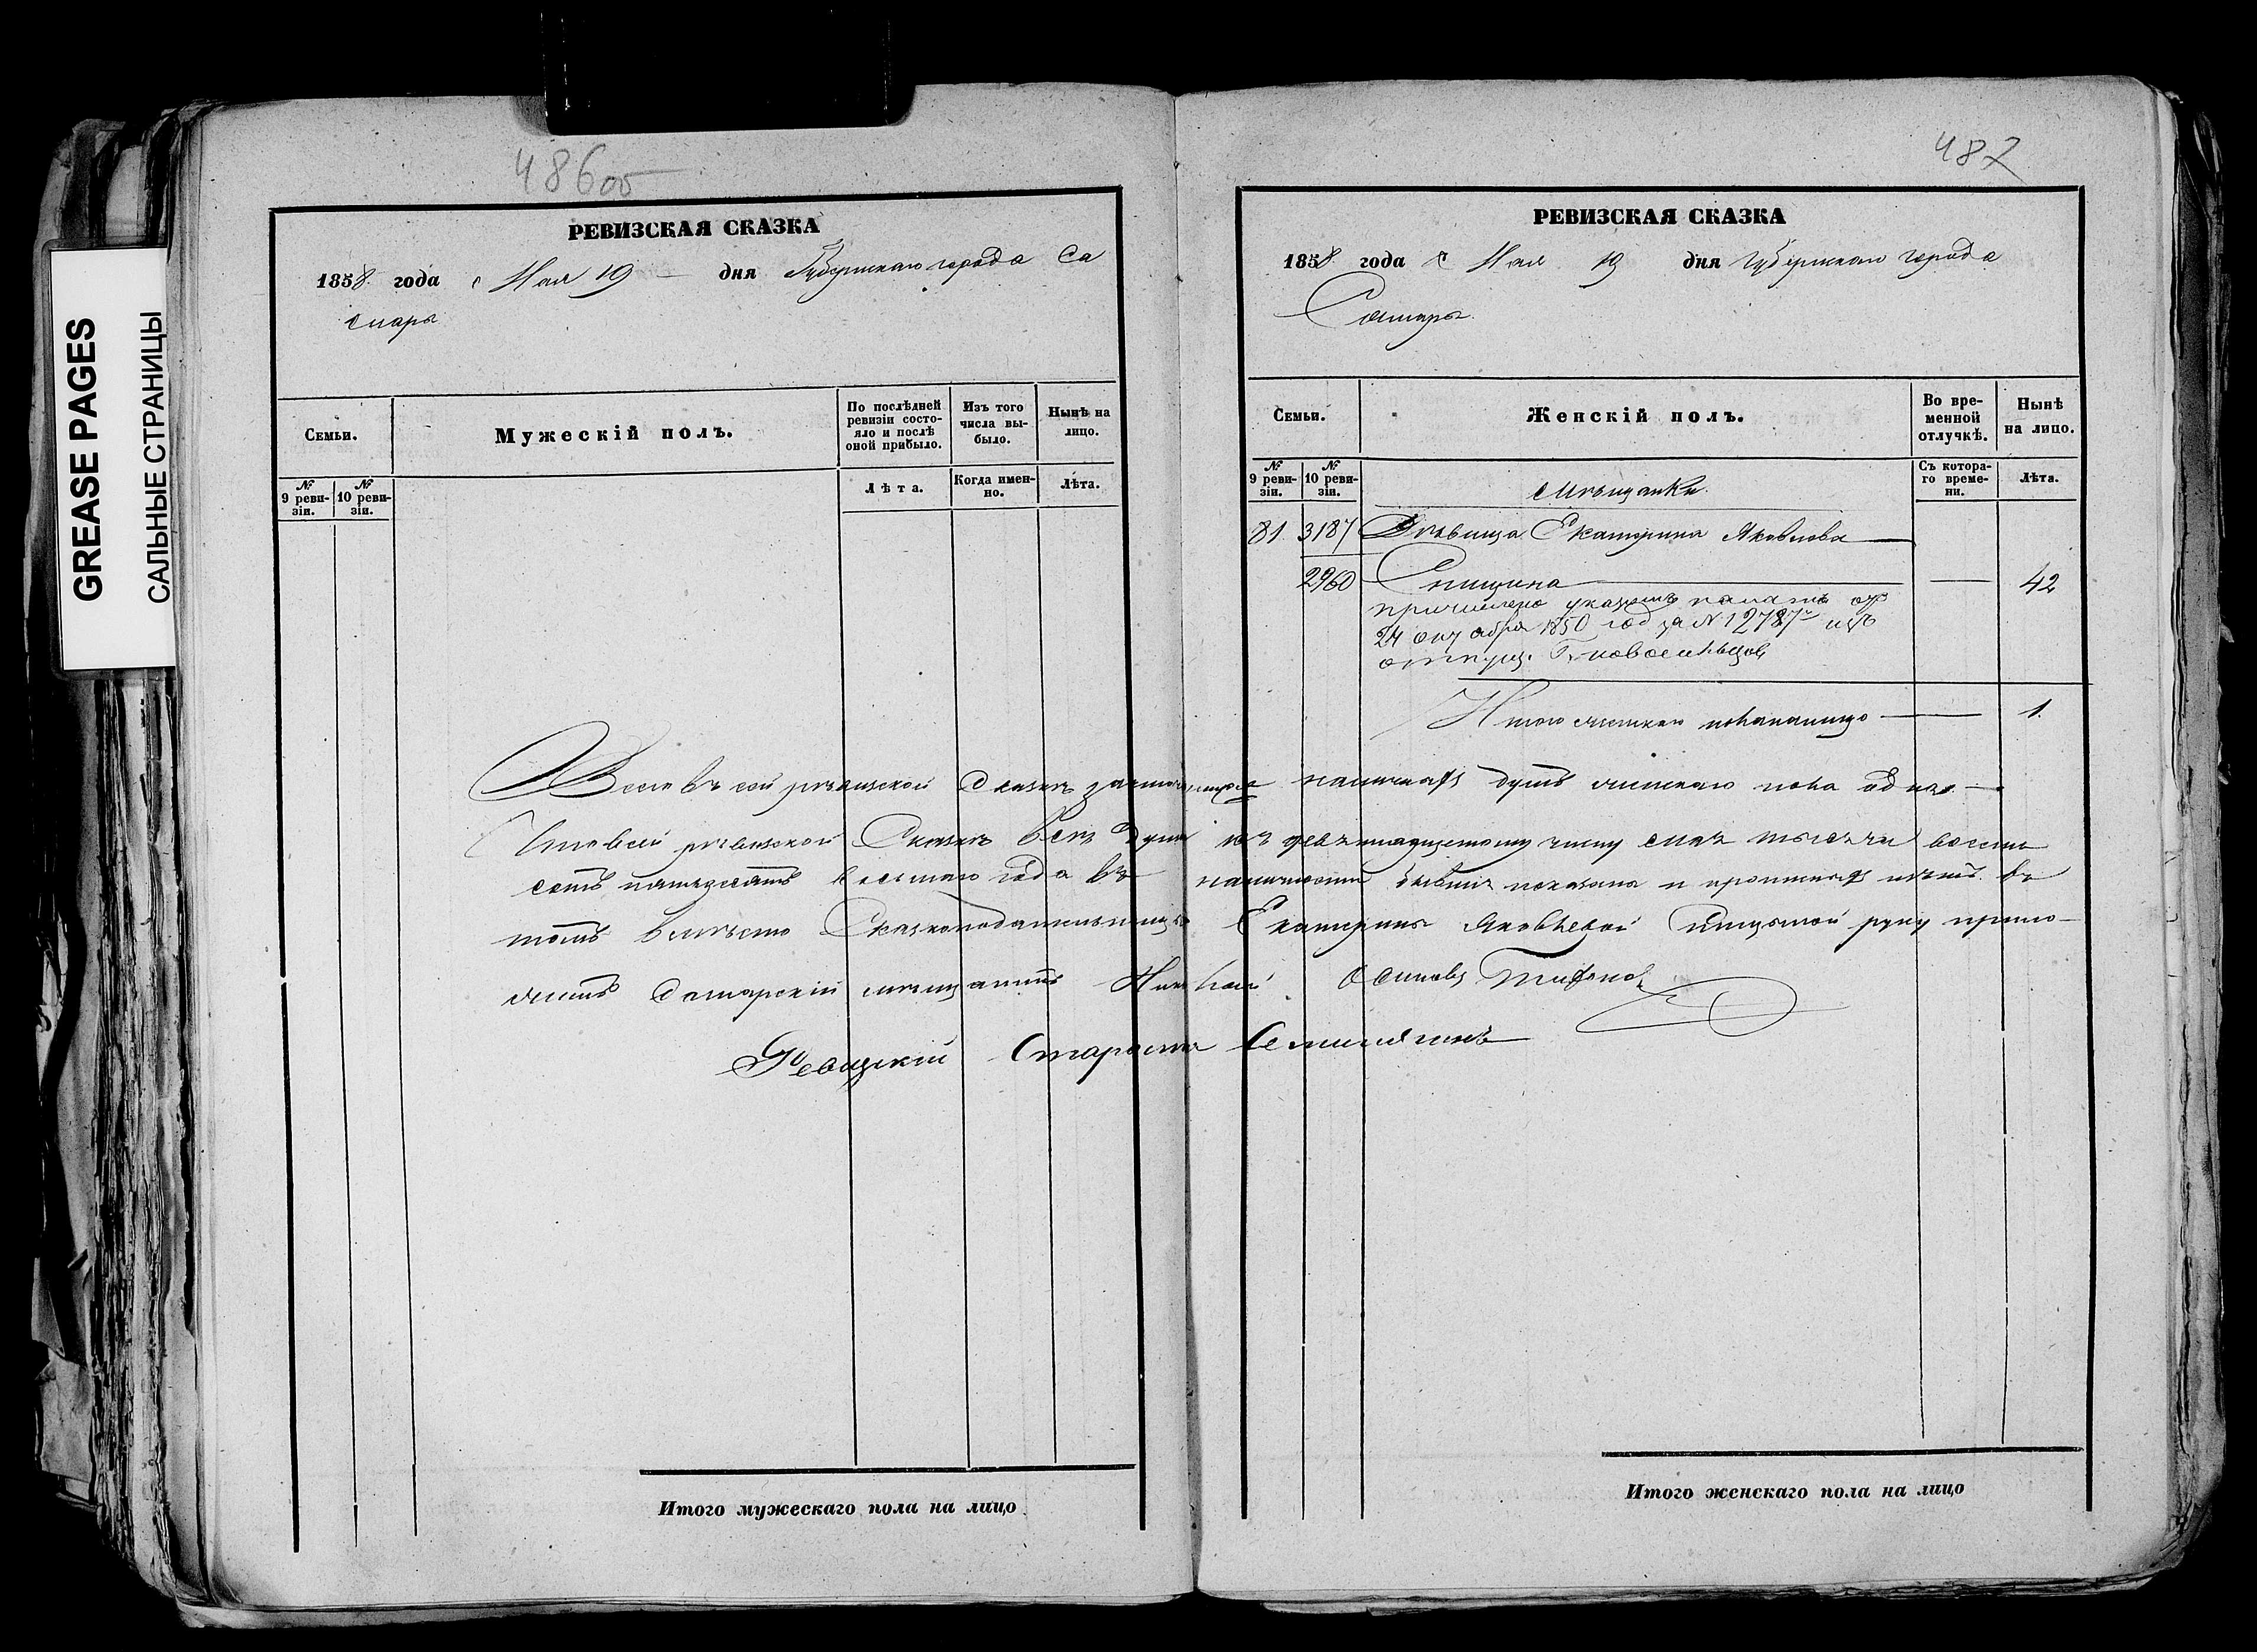 486об
РЕВИЗСКАЯ СКАЗКА
1858 года Мая 19 дня Губернскаго города Са
мары
Семьи.
Мужескій полъ.
По послѣдней ревизіи состояло и послѣ оной прибыло.
Изъ того числа выбыло.
Нынѣ на лицо.
№ 9 ревизіи.
№ 10 ревизіи.
Лѣта.
Когда именно.
Лѣта.
Итого мужескаго пола на лицо
487
РЕВИЗСКАЯ СКАЗКА
1858 года Мая 19 дня Губернскаго города
Самары
Семьи.
Женскій полъ.
Во временной отлучкѣ.
Нынѣ на лицо.
№ 9 ревизіи.
№ 10 ревизіи.
Съ котораго времени.
Лѣта.
Мѣщанки.
81 3187 Дѣвица Екатерина Яковлева
2960 42
причислена указомъ палаты отъ
24 октября 1850 год за № 12787 изъ
отпущ. Г. Новосильцов
Итого женскаго пола налицо 1.
Всего въ сей ревизской сказкѣ наличная душъ женскаго пола одна.
Что въ сей ревизской Сказкѣ всѣ души къ девятнадцатому числу мая тысяча восемь
сотъ пятьдесятъ восьмаго года въ наличности бывшія показана и прописныхъ нѣтъ въ
томъ вмѣсто Сказкоподательницы Екатерины Яковлевой руку прило
житъ Самарскій мѣщанинъ Николай Осиповъ
Ревизскій Староста
Итого женскаго пола на лицо
GREASE PAGES
САЛЬНЫЕ СТРАНИЦЫ